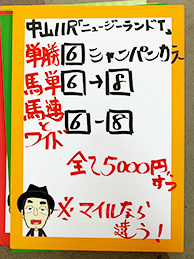 中山11R「ニュージーランドT」
単勝 6 シャンパンカラー
馬単 6→8
馬連とワイド 6-8
全て5000円ずつ
※マイルなら違う！